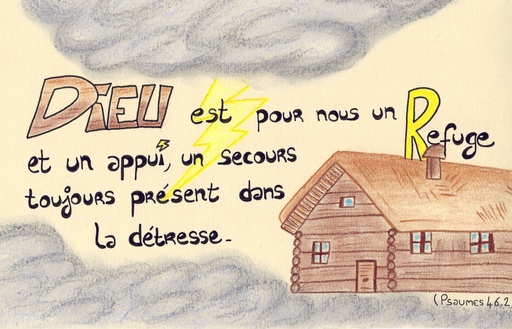 DiEU est pour nous un Refuge
et un appui, un secours
toujours présent dans
la détresse.
(Psaumes 46.2)